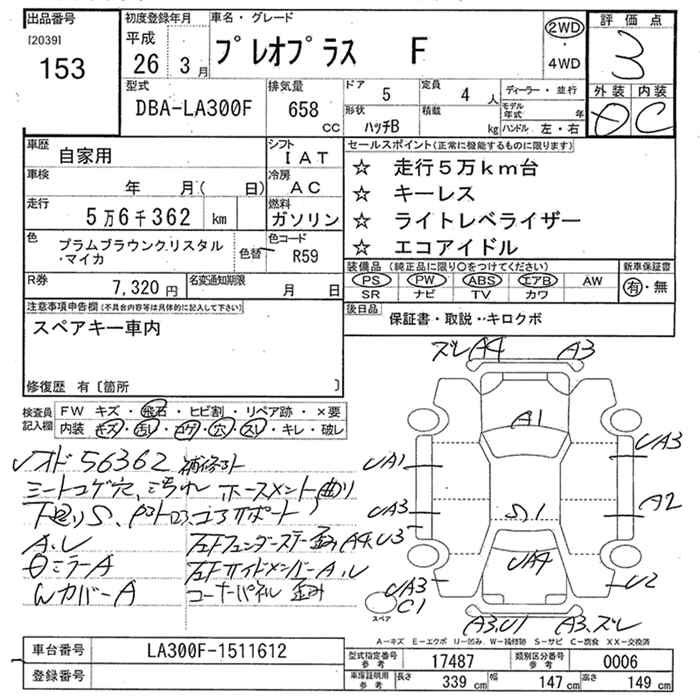 出品番号 初度登録年月 車名・グレード 評価点
[2039]
153
平成
26 3月 プレオプラス F
2WD
・
4WD
3
型式 排気量 ドア 定員 ディーラー・並行 外装 内装
DBA-LA300F 658 cc 5 4人
形状 積載 モデル年式 年
ハッチB kg ハンドル 左・右
D C
車歴 自家用 シフト IAT
セールスポイント(正常に機能するものに限ります)
車検 年 月( 日) 冷房 AC
☆ 走行5万km台
☆ キーレス
走行 5万6千362 km 燃料 ガソリン
☆ ライトレベライザー
☆ エコアイドル
色 プラムブラウンクリスタル
・マイカ
色替 色コード R59
装備品(純正品に限り○をつけてください) 新車保証書
PS PW ABS エアB AW
SR ナビ TV カワ
有・無
R券 7,320円 名変通知期限 月 日
後日品 保証書・取説・・キロクボ
注意事項申告欄(不具合内容等は具体的に記入して下さい)
スペアキー車内
修復歴 有〔箇所 〕
検査員記入欄
FW キズ・飛石・ヒビ割・リペア跡・×要
内装 キズ・汚レ・コゲ・穴・スレ・キレ・破レ
メオド56362 補修モト
シートコゲ穴、汚れ
下廻りS、
A、U
ミラーA
WカバーA
コーナーパネル歪み
ズレA4 A3
A1
UA1 UA3
UA3 A2
U3 S1
UA4
UA3 U2
C1
スペア
A3,U1 A3、ズレ
A-キズ E-エクボ U-凹み、W-補修跡 S-サビ C-腐食 XX-交換済
車台番号 LA300F-1511612
登録番号
型式指定番号参考 17487 類別区分番号参考 0006
車庫証明用参考 長さ 339cm 幅 147cm 高さ 149cm